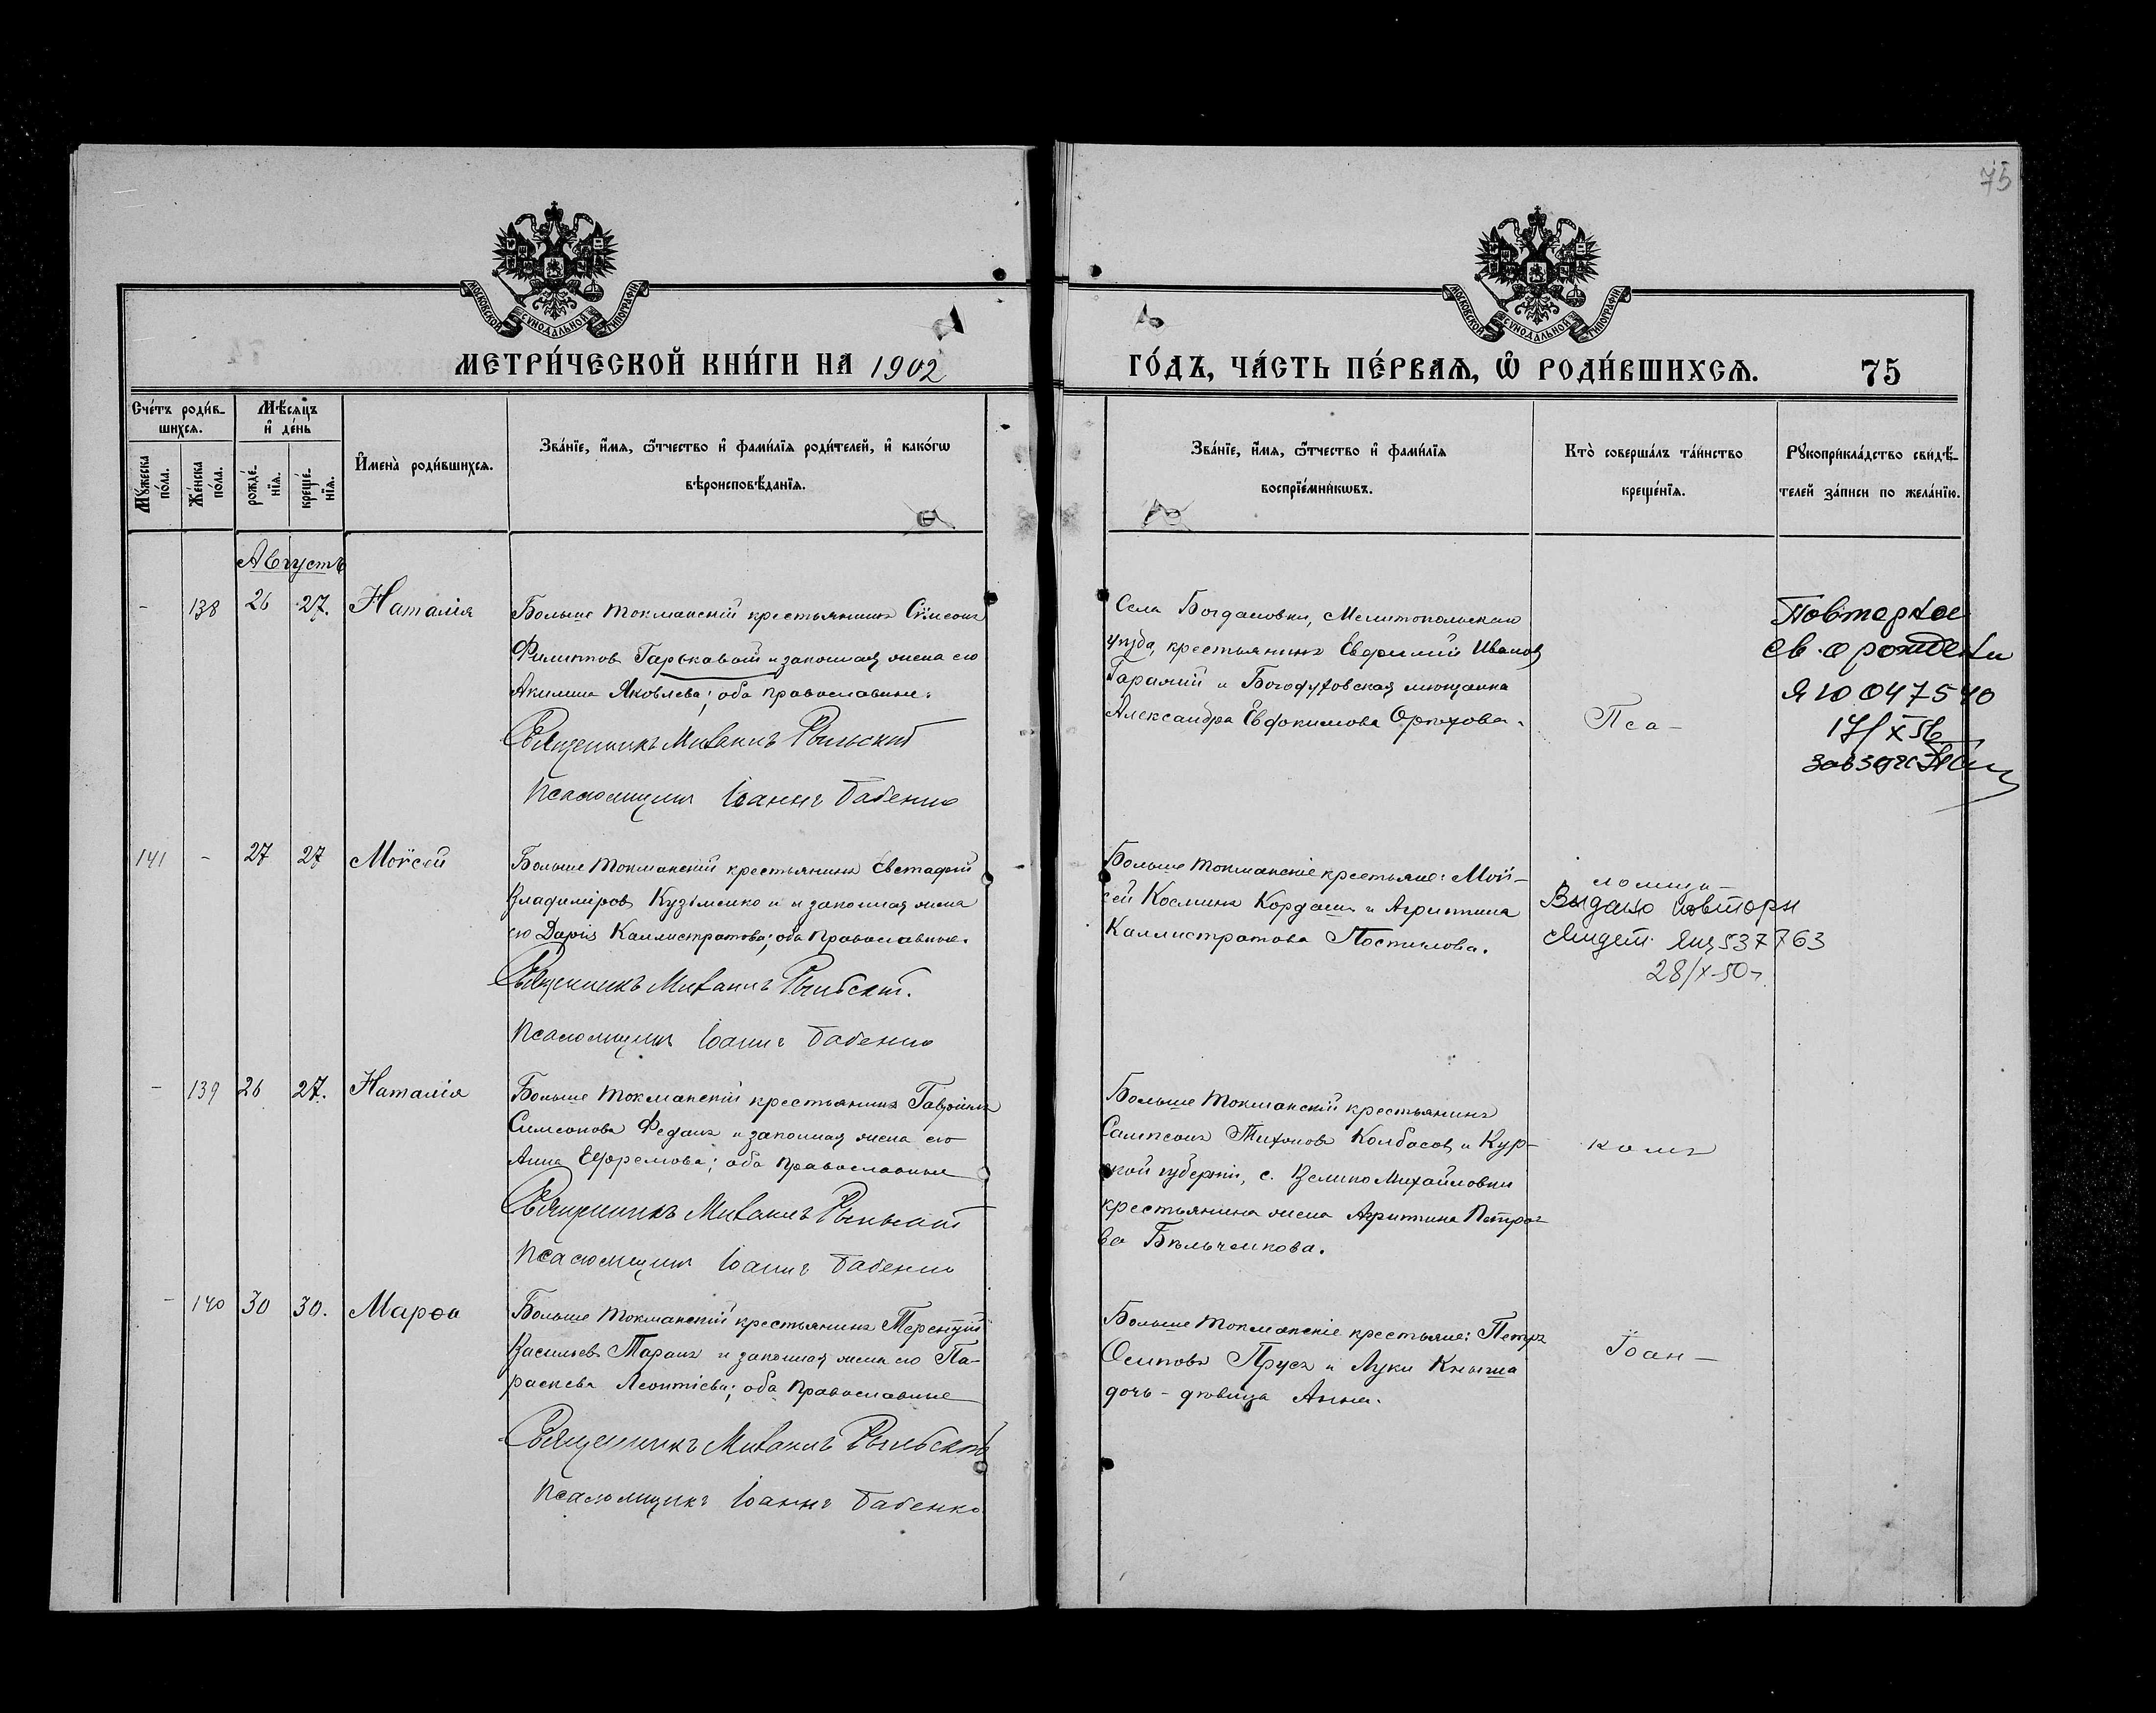 75
МОСКОВСКОЙ СУНОДАЛЬНОЙ ТИПОГРАФІИ
МОСКОВСКОЙ СУНОДАЛЬНОЙ ТИПОГРАФІИ
МЕТРИ́ЧЕСКОЙ КНИ́ГИ НА 1902
ГО́ДЪ, ЧА́СТЬ ПЕ́РВАѦ, Ѡ҆ РОДИ́ВШИХСѦ. 75
Сче́тъ роди́в-
шихсѧ.
Мѣ́сѧцъ
и҆ де́нь
Мꙋ́жеска
по́ла.
Же́нска
по́ла.
рожде́-
нїѧ.
креще́-
нїѧ.
И҆мена̀ роди́вшихсѧ.
Зва́нїе, и҆́мѧ, ѻ҆́тчество и҆ фами́лїѧ роди́телей, и҆ како́гѡ
вѣроисповѣ́данїѧ.
Зва́нїе, и҆́мѧ, ѻ҆́тчество и҆ фами́лїѧ
воспрїе́мникѡвъ.
Кто̀ соверша́лъ та́инство
креще́нїѧ.
Рꙋкоприкла́дство свидѣ́-
телей за́писи по жела́нїю.
Августъ
- 138 26 27. Наталія
Больше Токмакскій крестьянинъ Симеонъ
Филиппов Гарькавый и законная жена его
Акилина Яковлева; оба православные.
Священникъ Михаилъ Рыльский
Псаломщикъ Іоаннъ Бабенко
Села Богдановки, Мелитопольскаго
уѣзда, крестьянинъ Евфимий Иванов
и Богодуховская мещанка
Александра Евдокимова Орѣхова.
Пса-
Повторное
св. о рожден
ЯЮ 047540
17/X 56
141 - 27 27 Моѵсей
Больше Токмакскій крестьянинъ Евстафій
Владиміров Кузьменко и законная жена
его Дарія Каллистратова; оба православные.
Священникъ Михаилъ Рыльский.
Псаломщикъ Іоаннъ Бабенко
Больше Токмакскіе крестьяне: Моѵ-
сей Космина Кордаш и Агриппина
Каллистратова Постилова.
ломщи-
Выдано повторн
свидет. 537763
28/X-50г.
- 139 26 27. Наталія
Больше Токмакскій крестьянинъ Гавріилъ
Симеонова Федан и законная жена его
Анна Ефремова; оба православные
Священникъ Михаилъ Рыльский
Псаломщикъ Іоаннъ Бабенко
Больше Токмакскій крестьянинъ
Сампсонъ Тихонов Колбасов и Кур-
ской губерніи, с. Велико Михайловки
крестьянина жена Агриппина Петро-
ва Бѣльченкова.
комъ
- 140 30 30. Марѳа
Больше Токмакскій крестьянинъ Терентій
Васильев Таранъ и законная жена его Па-
раскева Леонтіева; оба православные
Священникъ Михаилъ Рыльский
Псаломщикъ Іоаннъ Бабенко
Больше Токмакскіе крестьяне: Петръ
Осиповъ Прусъ и Луки Кныша
дочь - дѣвица Анна.
Іоан-